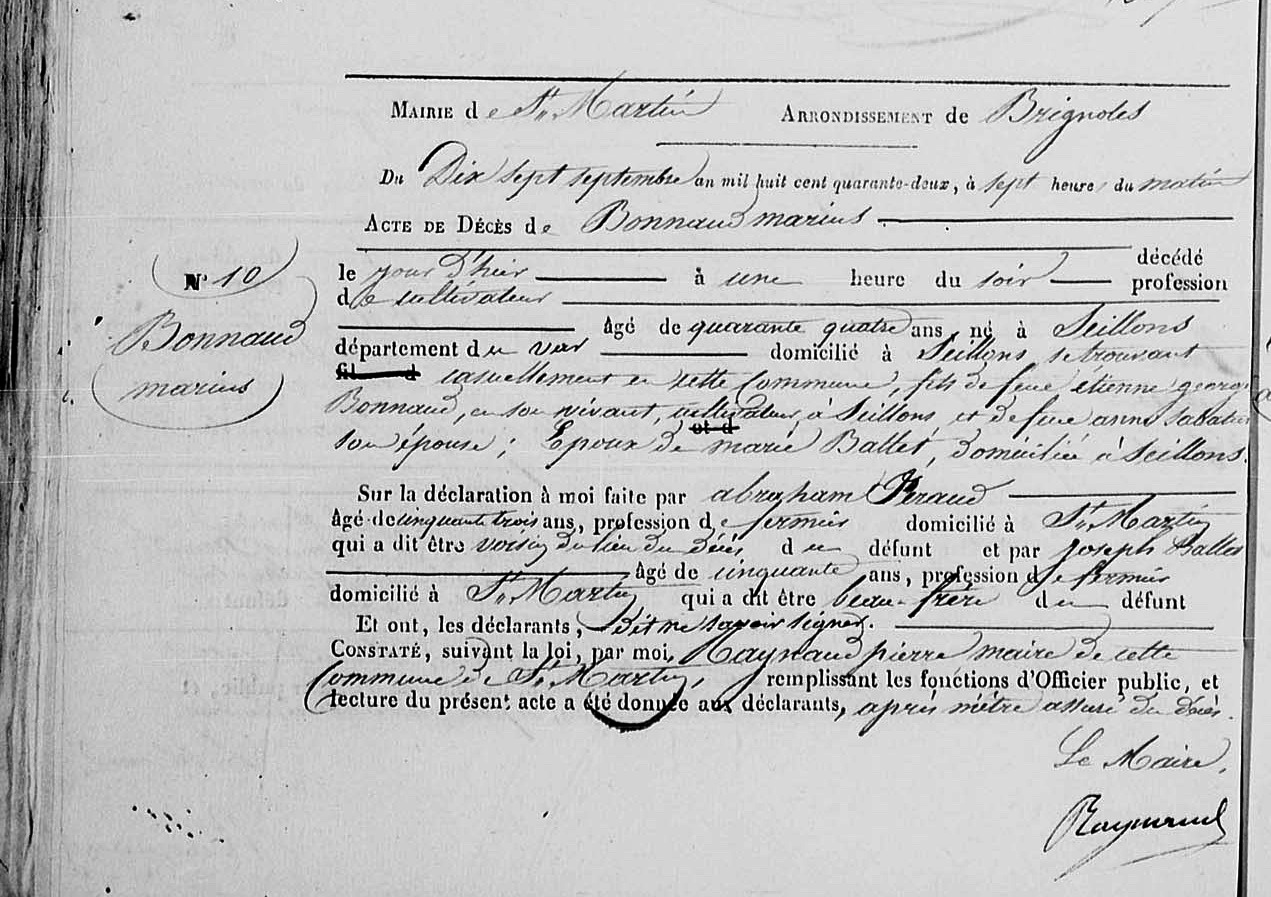 MAIRIE de St Martin ARRONDISSEMENT de Brignoles
Du Dix sept septembre an mil huit cent quarante-deux, à sept heures du matin
ACTE DE DÉCÈS de Bonnaud marius
N° 10
Bonnaud
marius
le jour d'hier à une heure du soir décédé
de cultivateur profession
âgé de quarante quatre ans, né à Seillons
département du var domicilié à Seillons, se trouvant
fil d casuellement en cette Commune, fils de feu étienne george
Bonnaud, en son vivant, cultivateur, à Seillons, et de feue anne Sabatier
et d
son épouse; Epoux de marie Ballet, domiciliée à Seillons.
Sur la déclaration à moi faite par abraham Féraud
âgé de cinquante trois ans, profession de fermier domicilié à St Martin
qui a dit être voisin du lieu du décès du défunt et par Joseph Ballet
âgé de cinquante ans, profession de fermier
domicilié à St Martin qui a dit être beau-frère du défunt
Et ont, les déclarants, dit ne savoir signer.
CONSTATÉ, suivant la loi, par moi, Raynaud pierre maire de cette
Commune de St Martin, remplissant les fonctions d'Officier public, et
lecture du présent acte a été donnée aux déclarants, après m'être assuré du décès.
Le Maire,
Raynaud